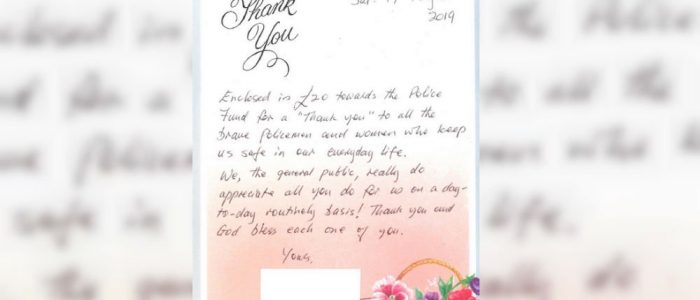 Thank
You
2019
Enclosed is £20 towards the Police
Fund for a "Thank you" to all the
brave Policemen and women who keep
us safe in our everyday life.
We, the general public, really do
appreciate all you do for us on a day-
to-day routinely basis! Thank you and
God bless each one of you.
Yours,